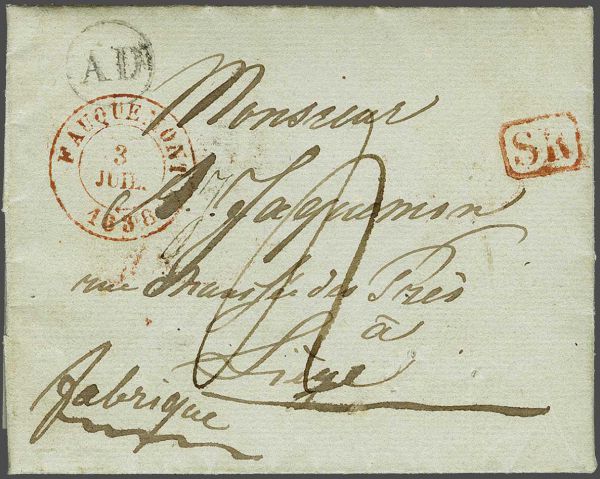 AD
FAUQUEMONT
3
JUIL.
1838
SR
Monsieur
Jaquemon
rue chaussée des Prés
à
Liège
fabrique